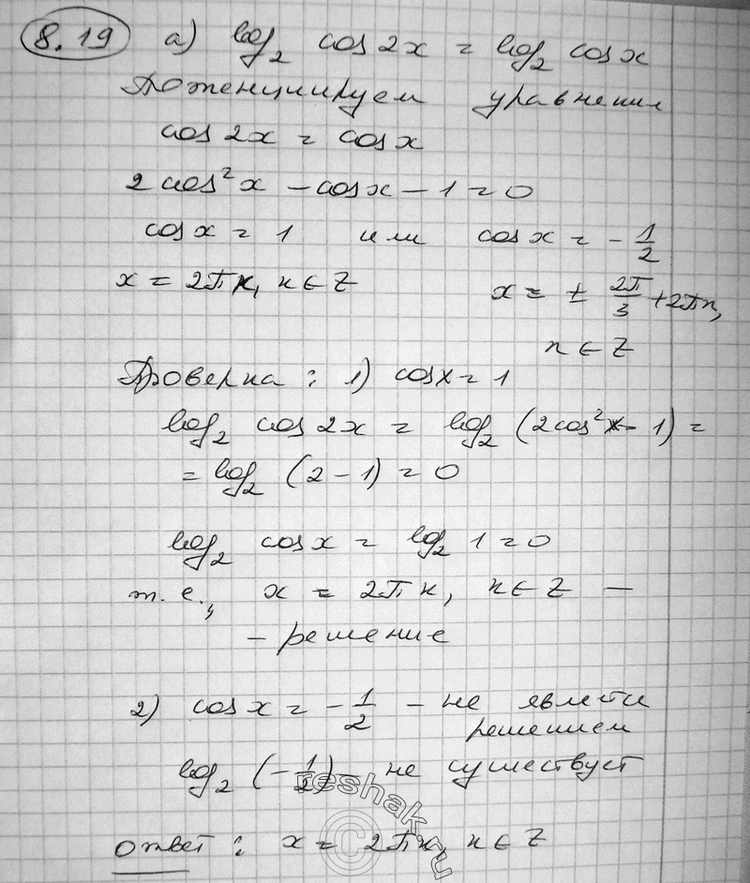 8.19 а) log₂ cos 2x = log₂ cos x
Потенциируем уравнение
cos 2x = cos x
2 cos²x - cos x - 1 = 0
cos x = 1 или cos x = - 1/2
x = 2πk, k ∈ Z x = ± 2π/3 + 2πn,
n ∈ Z
Проверка: 1) cos x = 1
log₂ cos 2x = log₂ (2cos²x - 1) =
= log₂ (2 - 1) = 0
log₂ cos x = log₂ 1 = 0
т. е., x = 2πk, k ∈ Z —
- решение
2) cos x = - 1/2 - не является
решением
log₂ (- 1/2) - не существует
Ответ: x = 2πk, k ∈ Z
reshak.ru
©